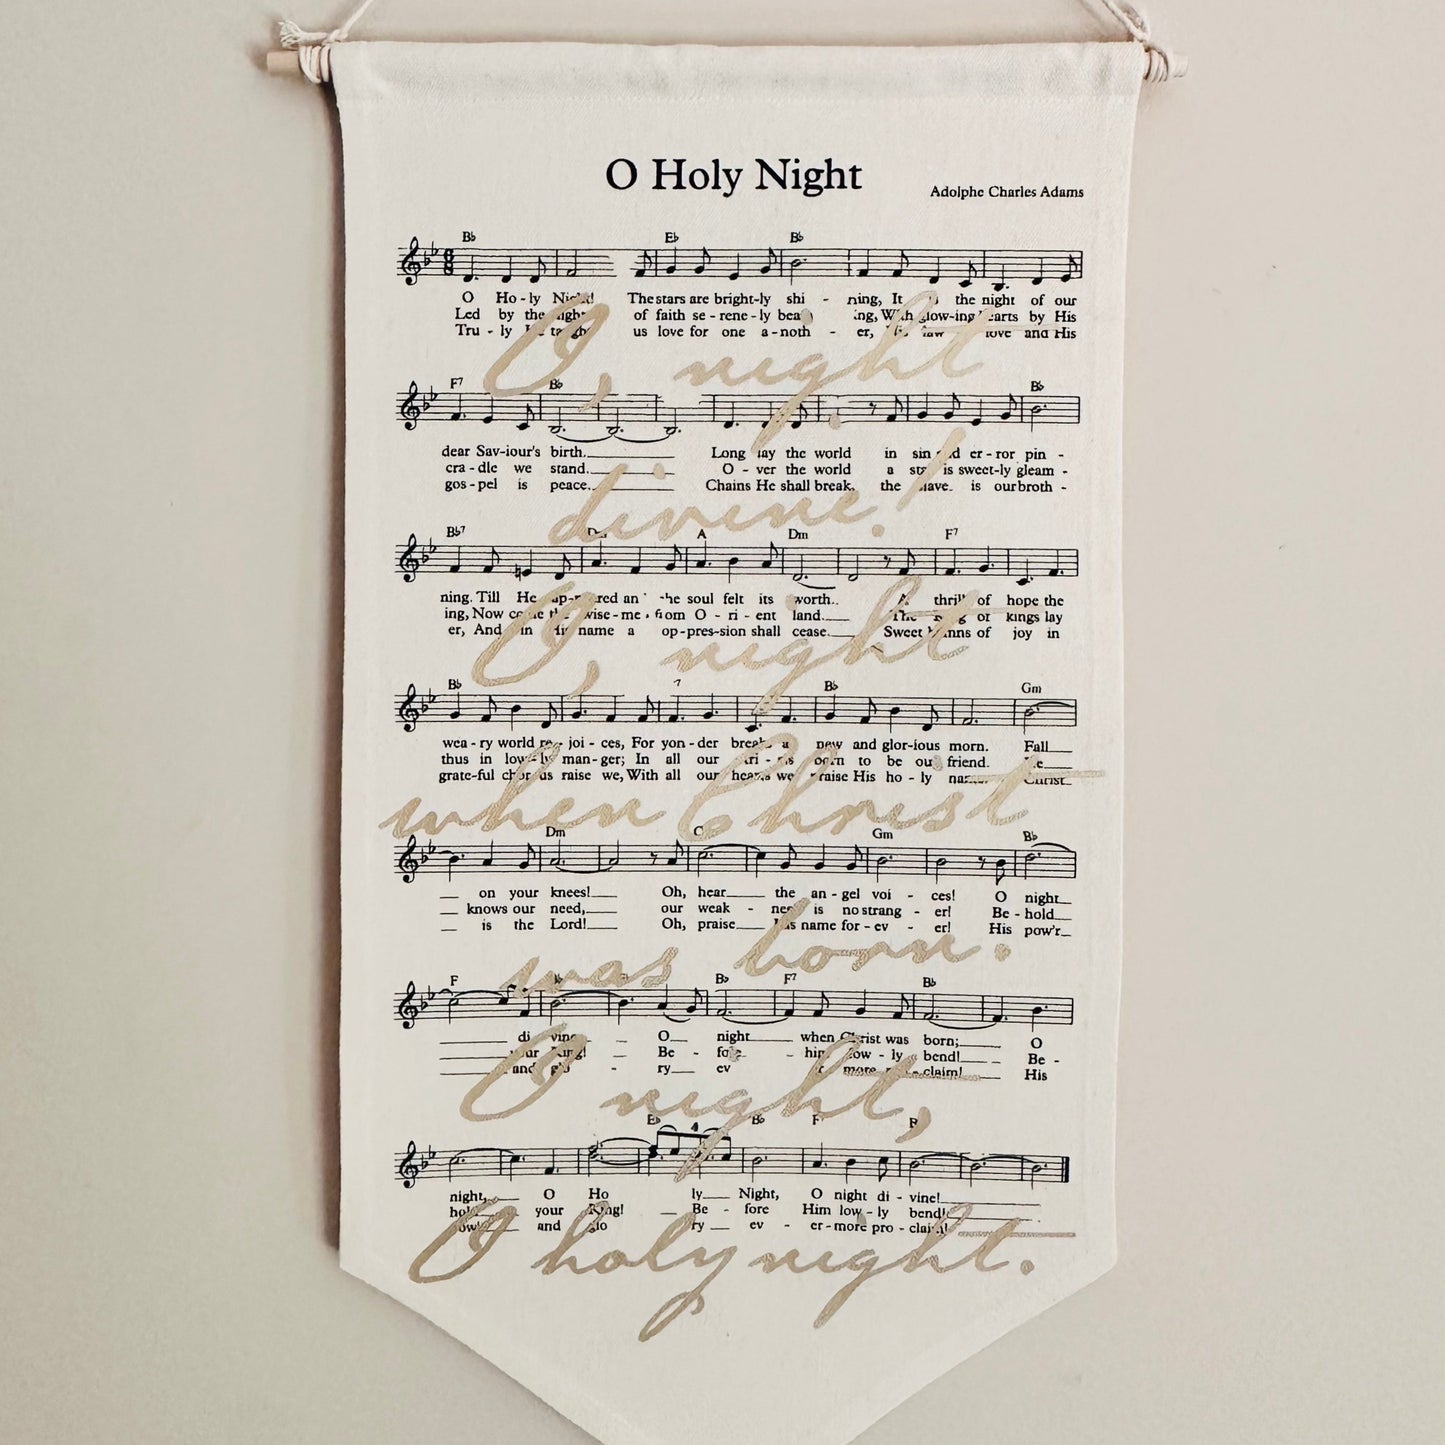 O Holy Night
Adolphe Charles Adams
B♭ E♭ B♭
O Ho - ly Night! The stars are bright - ly shi - ning, It the night of our
Led by the of faith se - rene - ly bea ing, With glow - ing hearts by His
Tru - ly us love for one a - noth - er, love and His
O, night
F7 B♭ B♭
dear Sav - iour's birth. Long lay the world in sin er - ror pin -
cra - dle we stand. O - ver the world a is sweet - ly gleam -
gos - pel is peace. Chains He shall break, the slave is our broth -
divine!
B♭7 A Dm F7
ning. Till He the soul felt its worth. A thrill of hope the
ing, Now wise - me from O - ri - ent land. The of kings lay
er, And in name a op - pres - sion shall cease. Sweet of joy in
O, night
B♭ 7 B♭ Gm
wea - ry world joi - ces, For yon - der new and glor - ious morn. Fall
thus in low - ly man - ger; In all our to be our friend.
grate - ful raise we, With all our we praise His ho - ly Christ
when Christ
Dm Gm B♭
on your knees! Oh, hear the an - gel voi - ces! O night
knows our need, our weak - is no strang - er! Be - hold
is the Lord! Oh, praise name for - ev - er! His pow'r
was born.
F B♭ F7 B♭
di O night when Christ was born; O
Be - low - ly bend! Be -
and ry ev more claim! His
O night,
E♭ 4 B♭
night, O Ho ly Night, O night di - vine!
your King! Be - fore Him low - ly bend!
and ry ev - er - more pro - claim!
O holy night.